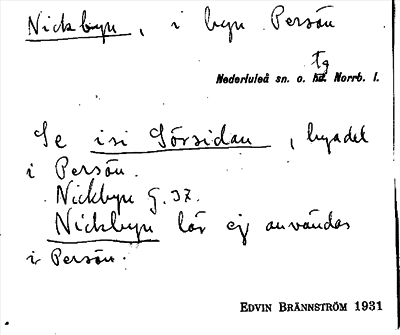 Nickbyn, i byn Persön
tg
Nederluleå sn. o. hd. Norrb. l.
Se isi Sörsidan, byadel
i Persön.
Nickbyn G. 37.
Nickbyn lär ej användas
i Persön.
EDVIN BRÄNNSTRÖM 1931